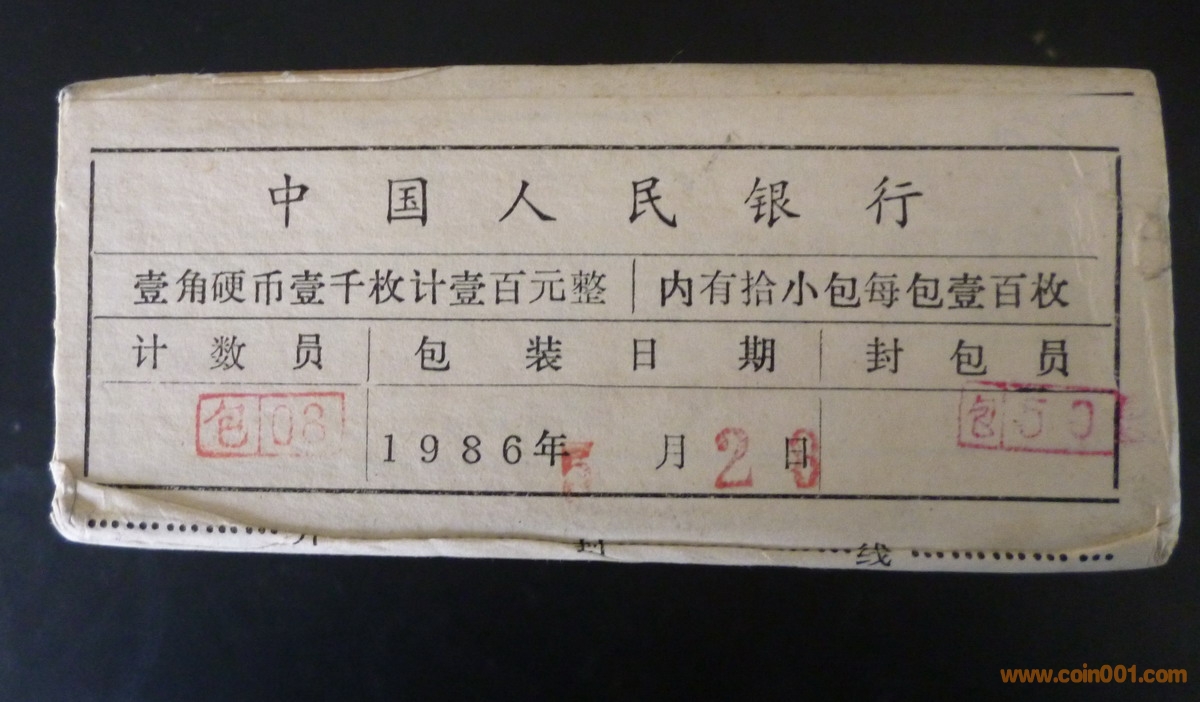 中国人民银行
壹角硬币壹千枚计壹百元整 内有拾小包每包壹百枚
计数员 包装日期 封包员
包 08 1986年5月23日 包 50
开封线
www.coin001.com